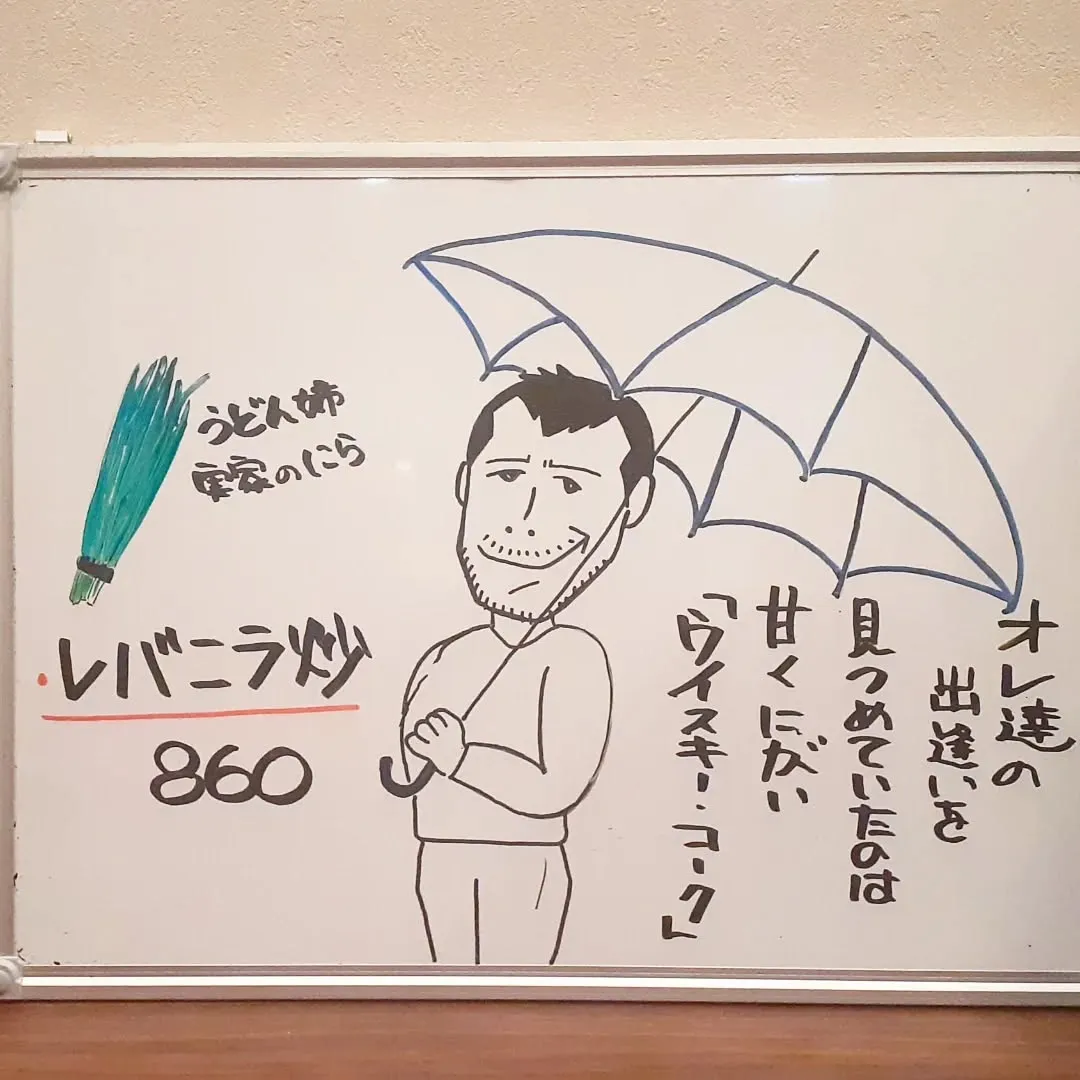 うどん姉
実家のにら
・レバニラ炒
860
オレ達の
出逢いを
見つめていたのは
甘くにがい
「ウイスキー・コーク」